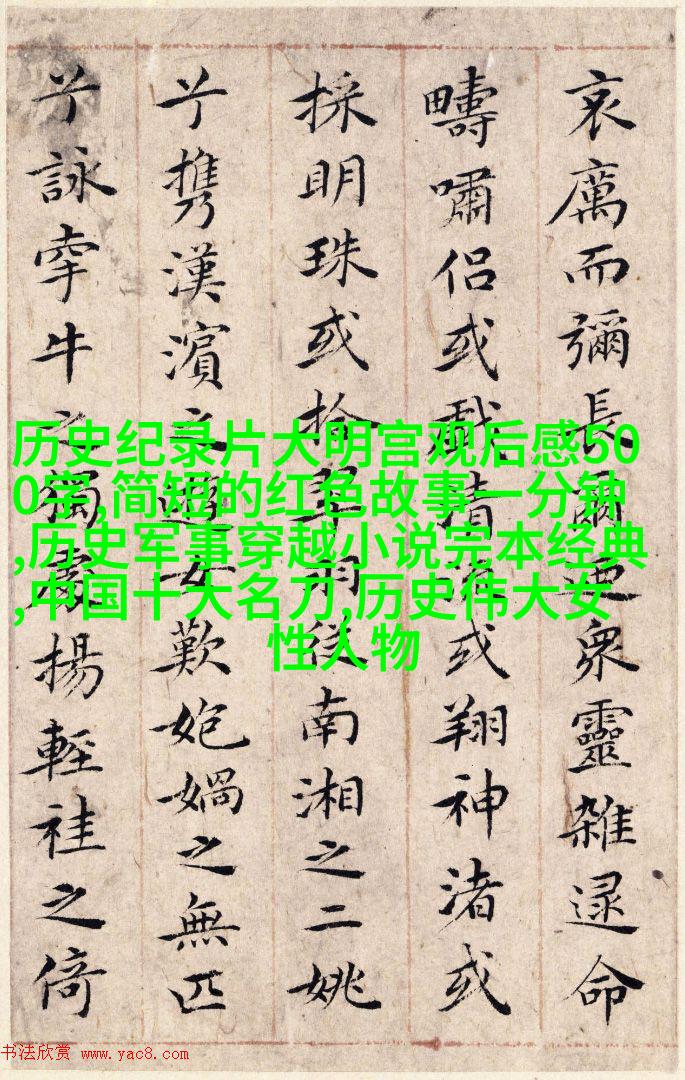 哀厲而彌長爾迺衆靈雜遝命
疇嘯侶或戲清流或翔神渚或
採明珠或拾翠羽從南湘之二姚
兮攜漢濱之遊女歎媧之無匹
兮詠牽牛之獨處揚輕袿之倚
历史纪录片大明宫观后感50
0字,简短的红色故事一分钟
,历史军事穿越小说完本经典
,中国十大名刀,历史伟大女
性人物
书法欣赏 www.yac8.com